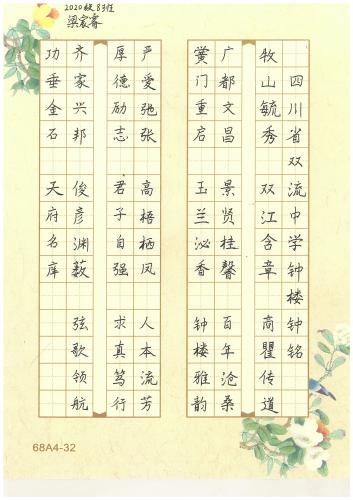 2020级83班
梁宸睿
四川省双流中学钟楼钟铭
牧山毓秀 双江含章 商瞿传道
广都文昌 景贤桂馨 百年沧桑
黉门重启 玉兰泌香 钟楼雅韵
严爱弛张 高梧栖凤 人本流芳
厚德励志 君子自强 求真笃行
齐家兴邦 俊彦渊薮 弦歌领航
功垂金石 天府名庠
68A4-32